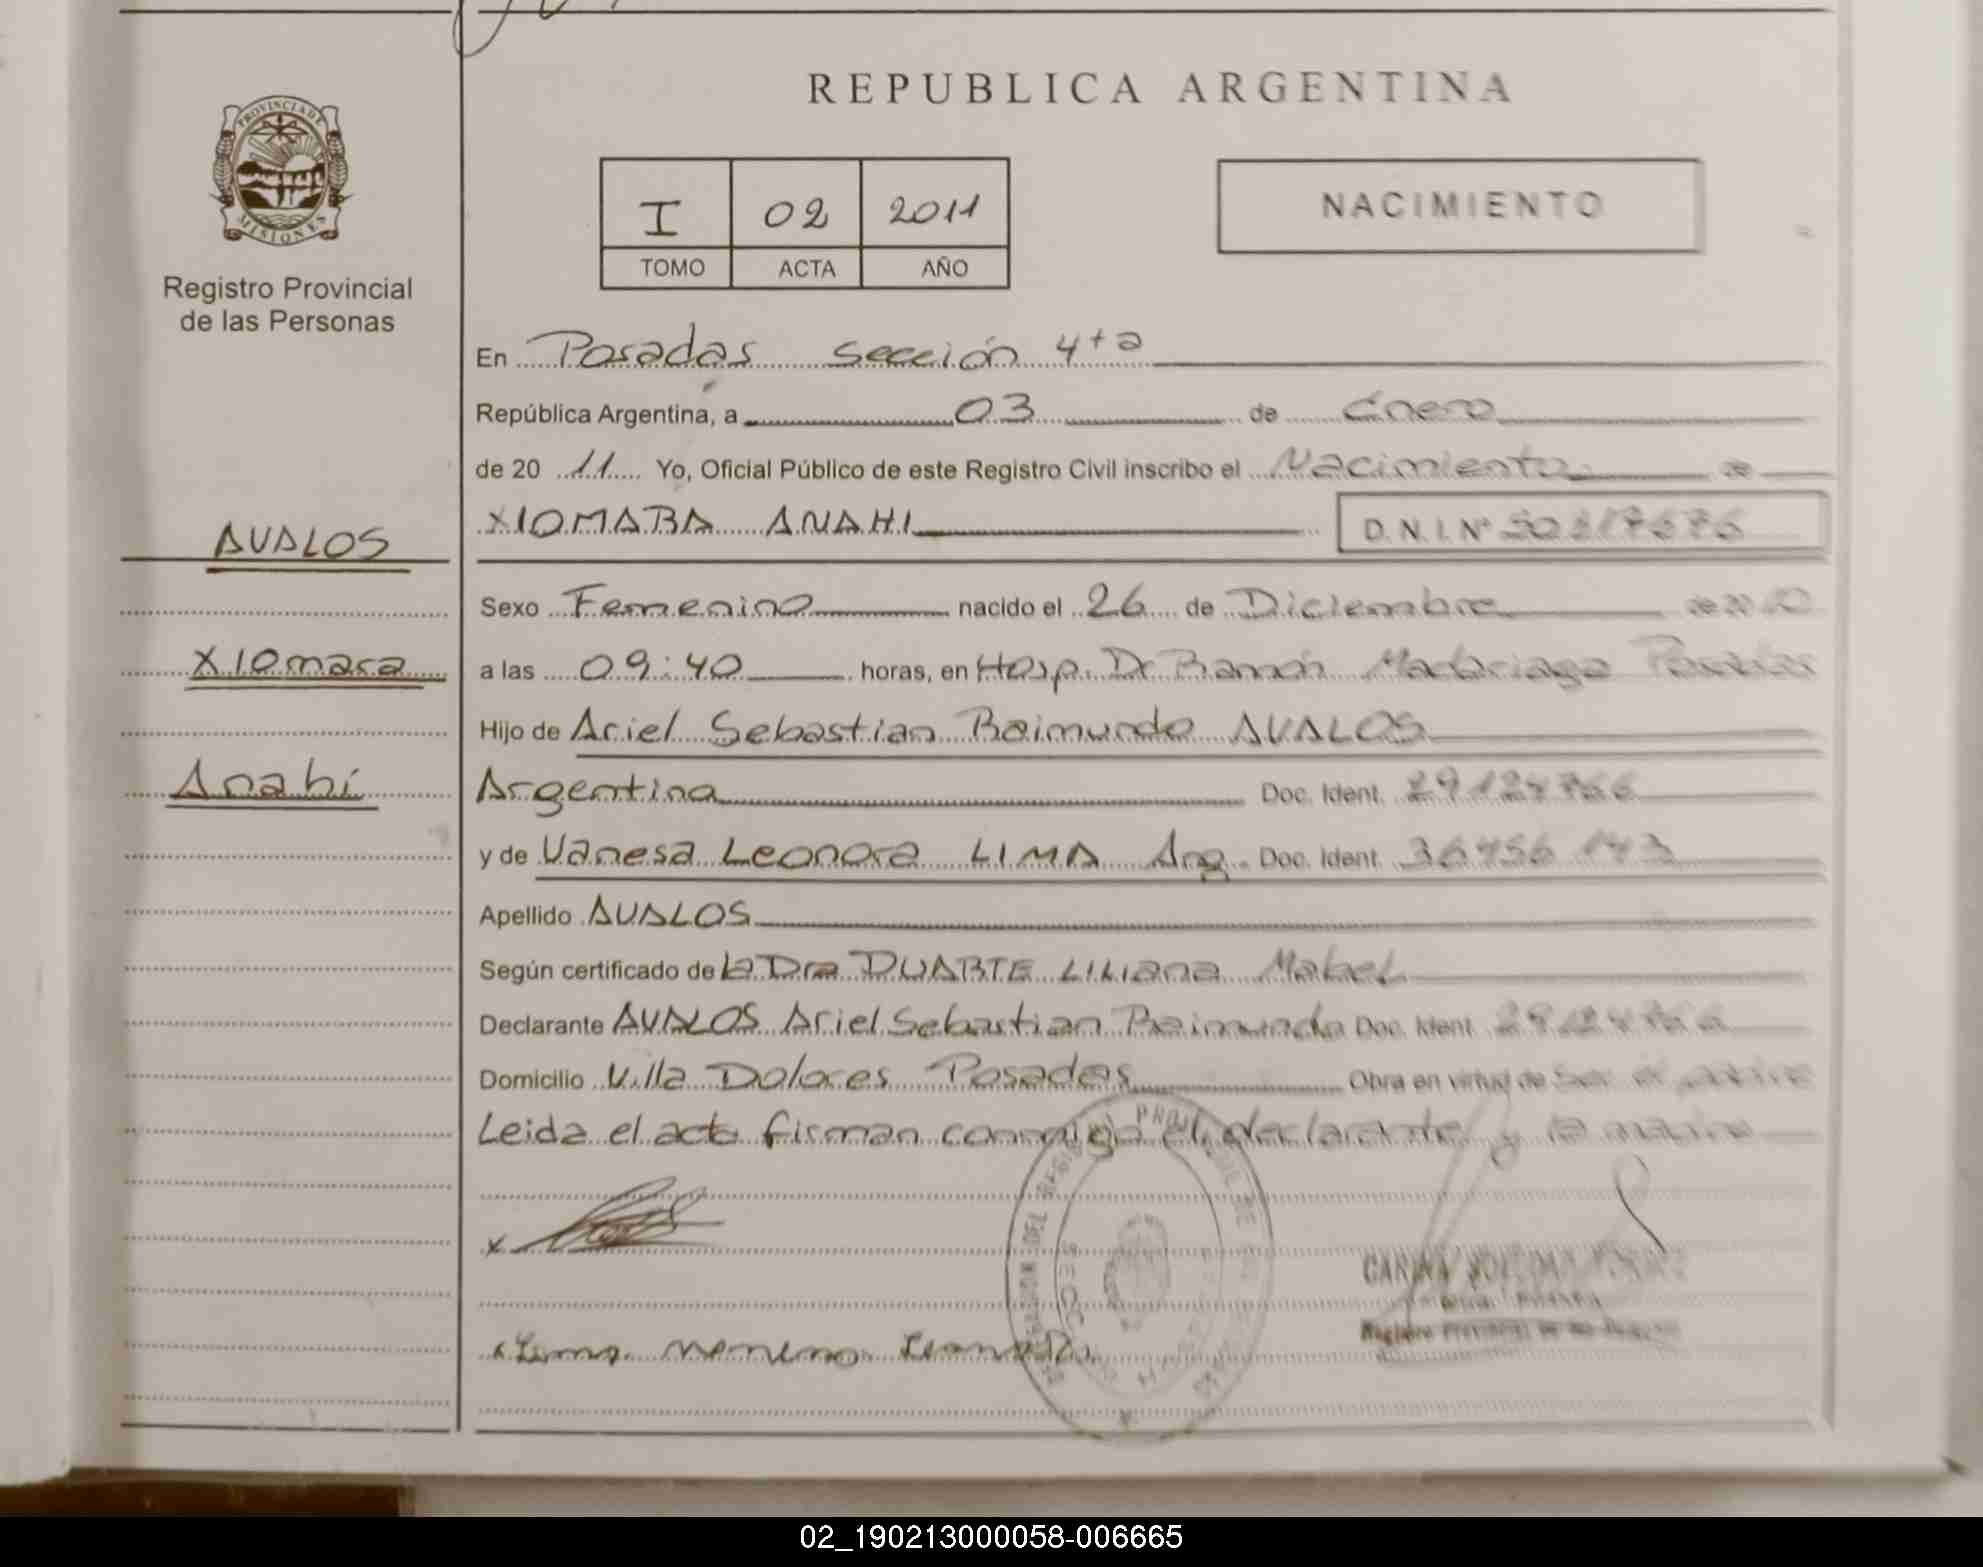 REPUBLICA ARGENTINA
PROVINCIA DE MISIONES
I 02 2011
TOMO ACTA AÑO
NACIMIENTO
Registro Provincial
de las Personas
En Posadas Sección 4ta
República Argentina, a 03 de Enero
de 20 11 Yo, Oficial Público de este Registro Civil inscribo el Nacimiento de
AVALOS
XIOMARA ANAHI
D.N.I. Nº
Sexo Femenino nacido el 26 de Diciembre de 2010
Xiomara
a las 09:40 horas, en Hosp. Dr Ramón Madariaga Posadas
Hijo de Ariel Sebastian Raimundo AVALOS
Anahí
Argentina Doc. Ident. 29124766
y de Vanesa Leonora LIMA Arg. Doc. Ident. 36456 143
Apellido AVALOS
Según certificado de la Dra DUARTE Liliana Mabel
Declarante AVALOS Ariel Sebastian Raimundo Doc. Ident. 29124766
Domicilio Villa Dolores Posadas Obra en virtud de Ser el padre
Leida el acta firman conmigo el declarante y la madre
x
CARINA
02_190213000058-006665